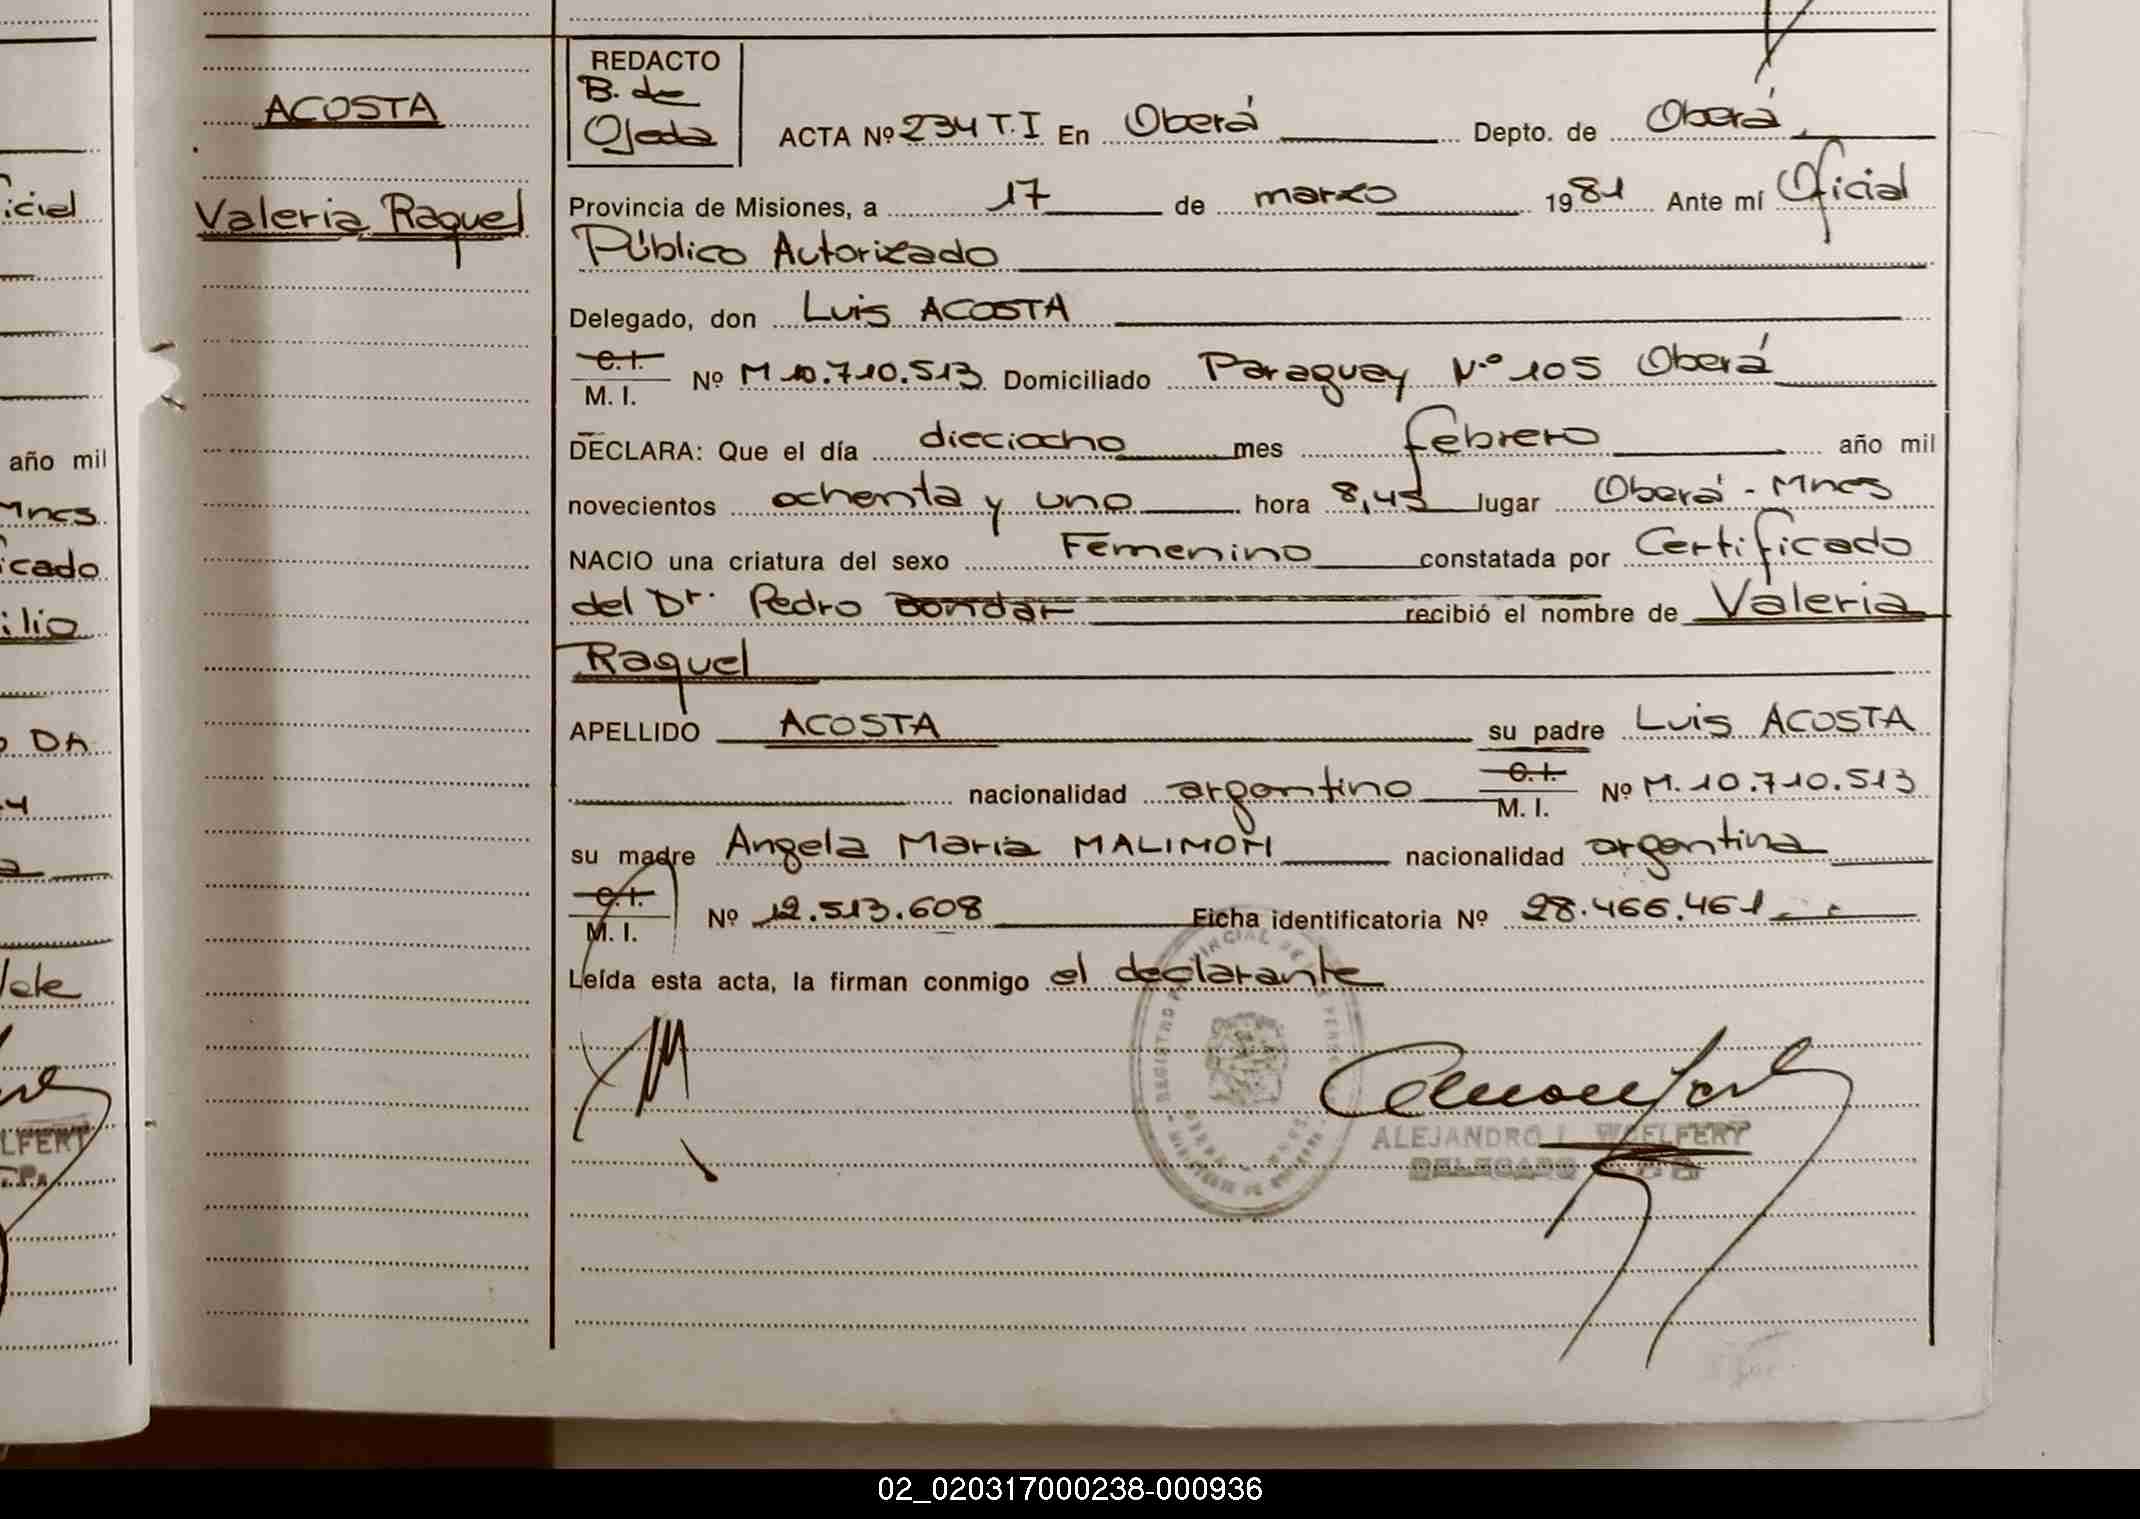 ACOSTA
Valeria Raquel
REDACTO
B. de
Ojeda
ACTA Nº 234 T.I En Oberá Depto. de Oberá
Provincia de Misiones, a 17 de marzo 1981 Ante mí Oficial
Público Autorizado
Delegado, don Luis ACOSTA
C. I.
M. I. Nº M 10.710.513 Domiciliado Paraguay Nº 105 Oberá
DECLARA: Que el día dieciocho mes febrero año mil
novecientos ochenta y uno hora 8,45 lugar Oberá - Mnes
NACIO una criatura del sexo Femenino constatada por Certificado
del Dr. Pedro Bondar recibió el nombre de Valeria
Raquel
APELLIDO ACOSTA su padre Luis ACOSTA
nacionalidad argentino C. I. M. I. Nº M.10.710.513
su madre Angela Maria MALIMOM nacionalidad argentina
C. I.
M. I. Nº 12.513.608 Ficha identificatoria Nº 28.466.461
Leída esta acta, la firman conmigo el declarante
ALEJANDRO L. WOELFERT
DELEGADO
año mil
Mnes
icado
ilio
02_020317000238-000936